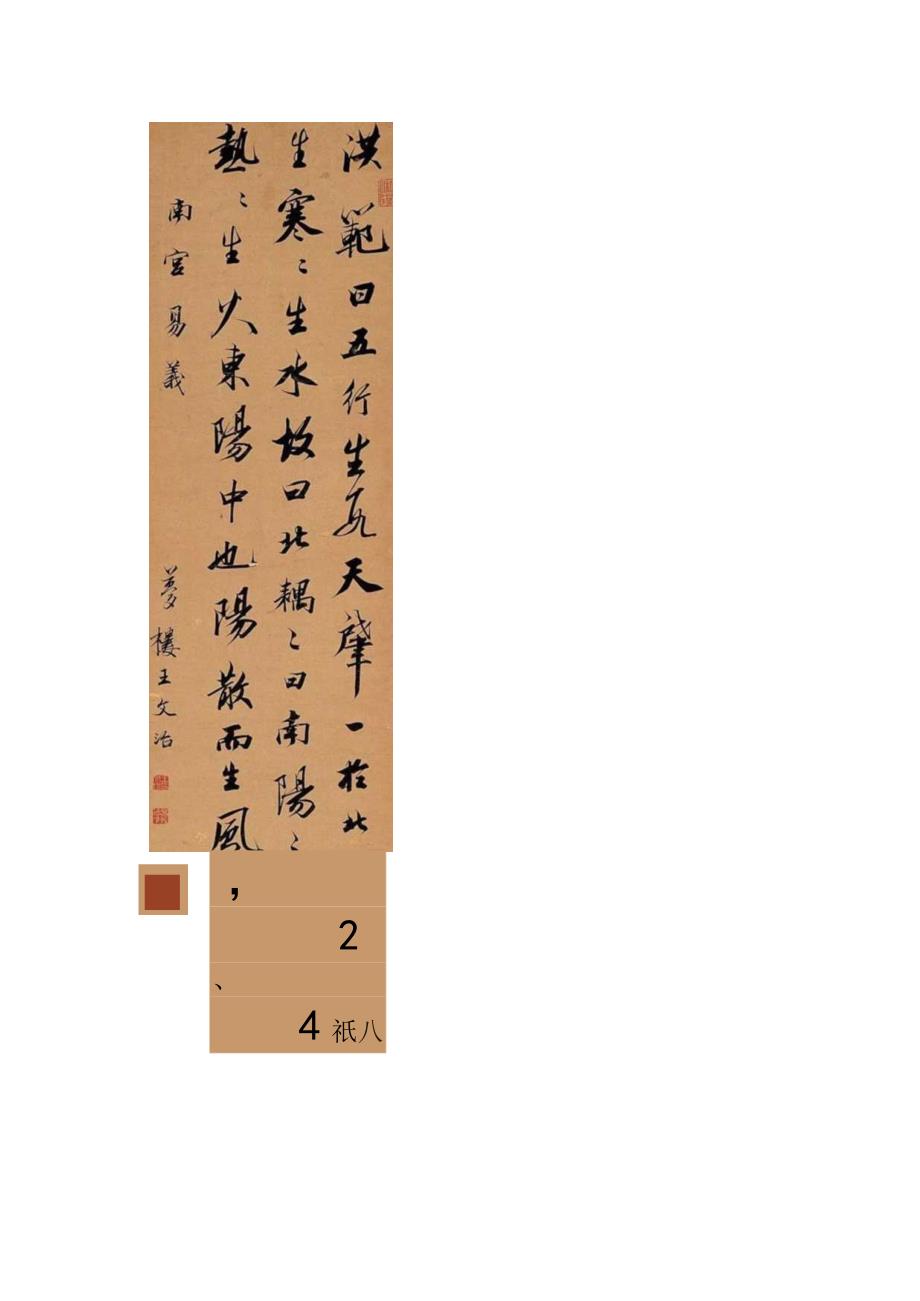 洪範曰五行生數天肇一於北
生寒〻生水故曰北耦〻曰南陽〻
熱〻生火東陽中也陽散而生風
南宫易義
夢樓王文治
,
2
、
4祇八